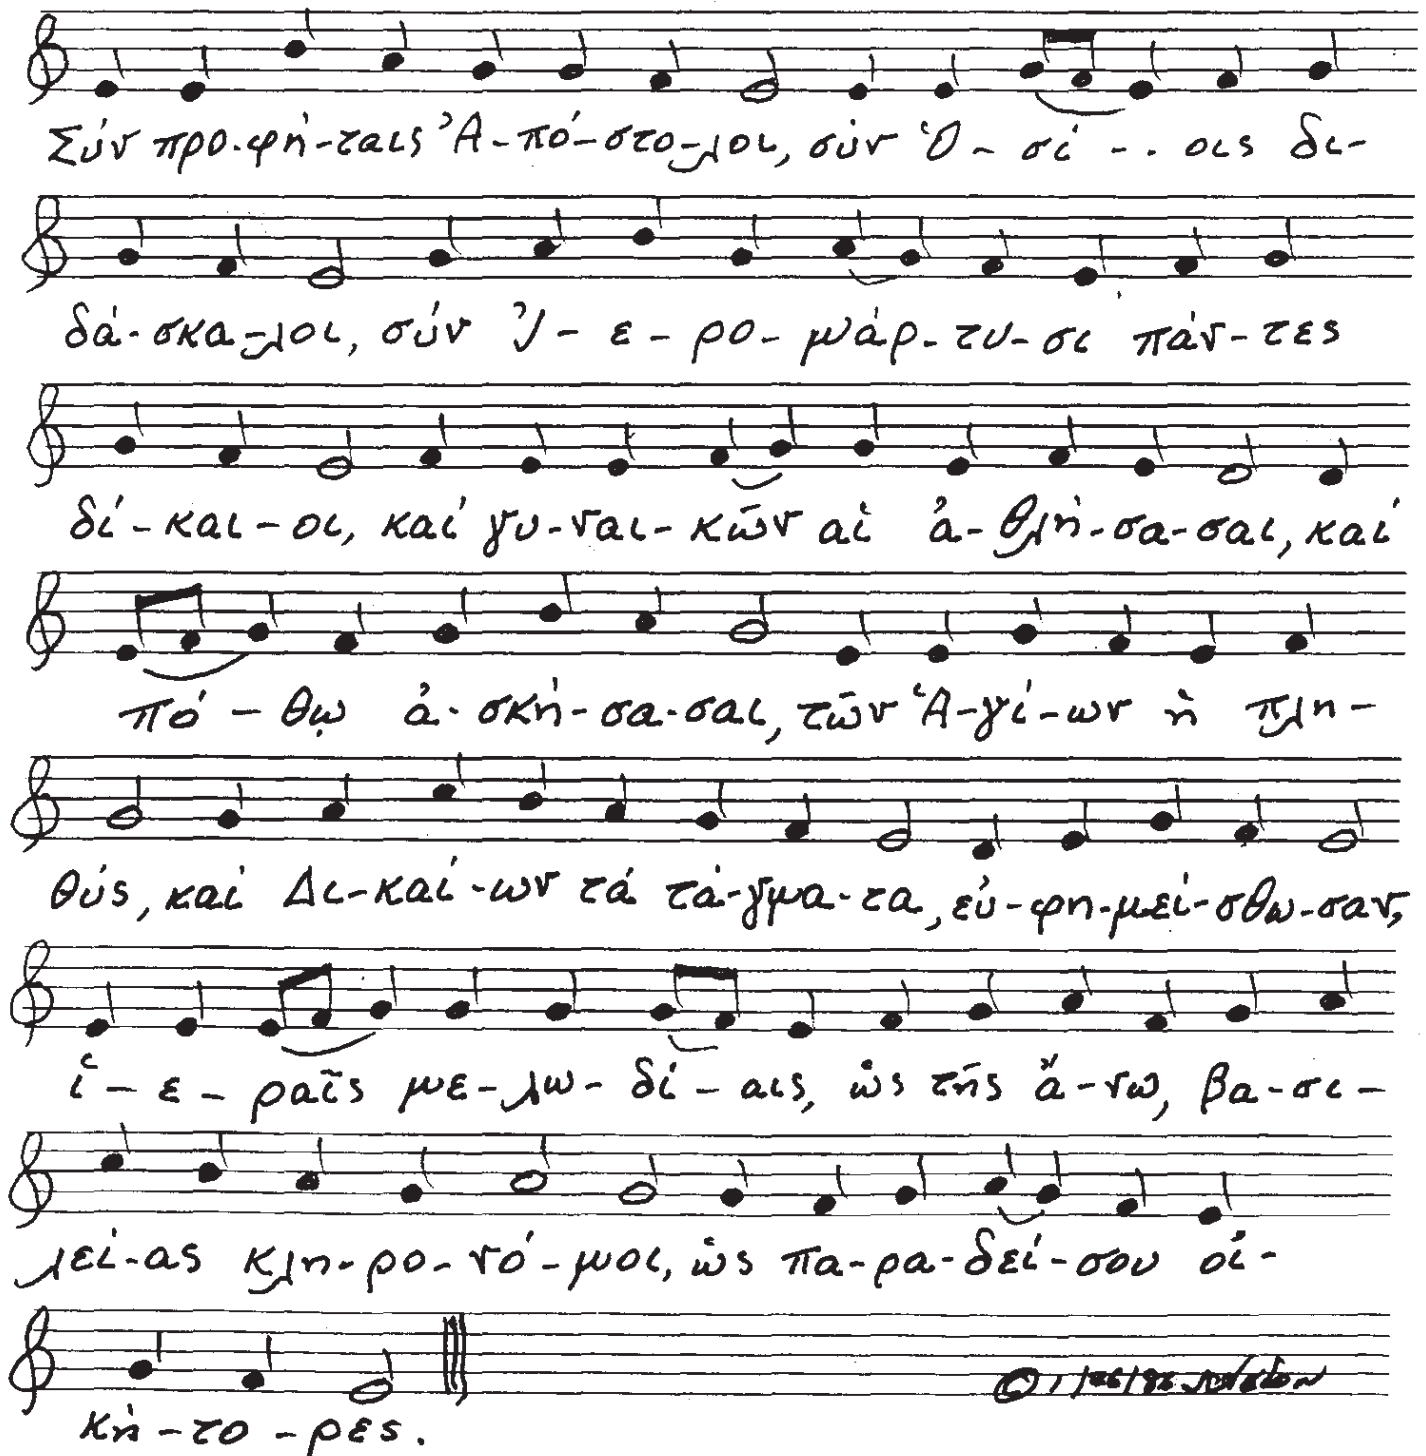 Σύν προ-φή-ταις Ἀ-πό-στο-λοι, σύν Ὁ-σί--οις δι-
δά-σκα-λοι, σύν Ἱ-ε-ρο-μάρ-τυ-σι πάν-τες
δί-και-οι, καί γυ-ναι-κῶν αἱ ἀ-θλή-σα-σαι, καί
πό-θῳ ἀ-σκή-σα-σαι, τῶν Ἁ-γί-ων ἡ πλη-
θύς, καί Δι-καί-ων τά τά-γμα-τα, εὐ-φη-μεί-σθω-σαν,
ἱ-ε-ραῖς με-λω-δί-αις, ὡς τῆς ἄ-νω, βα-σι-
λεί-ας κλη-ρο-νό-μοι, ὡς πα-ρα-δεί-σου οἰ-
κή-το-ρες.